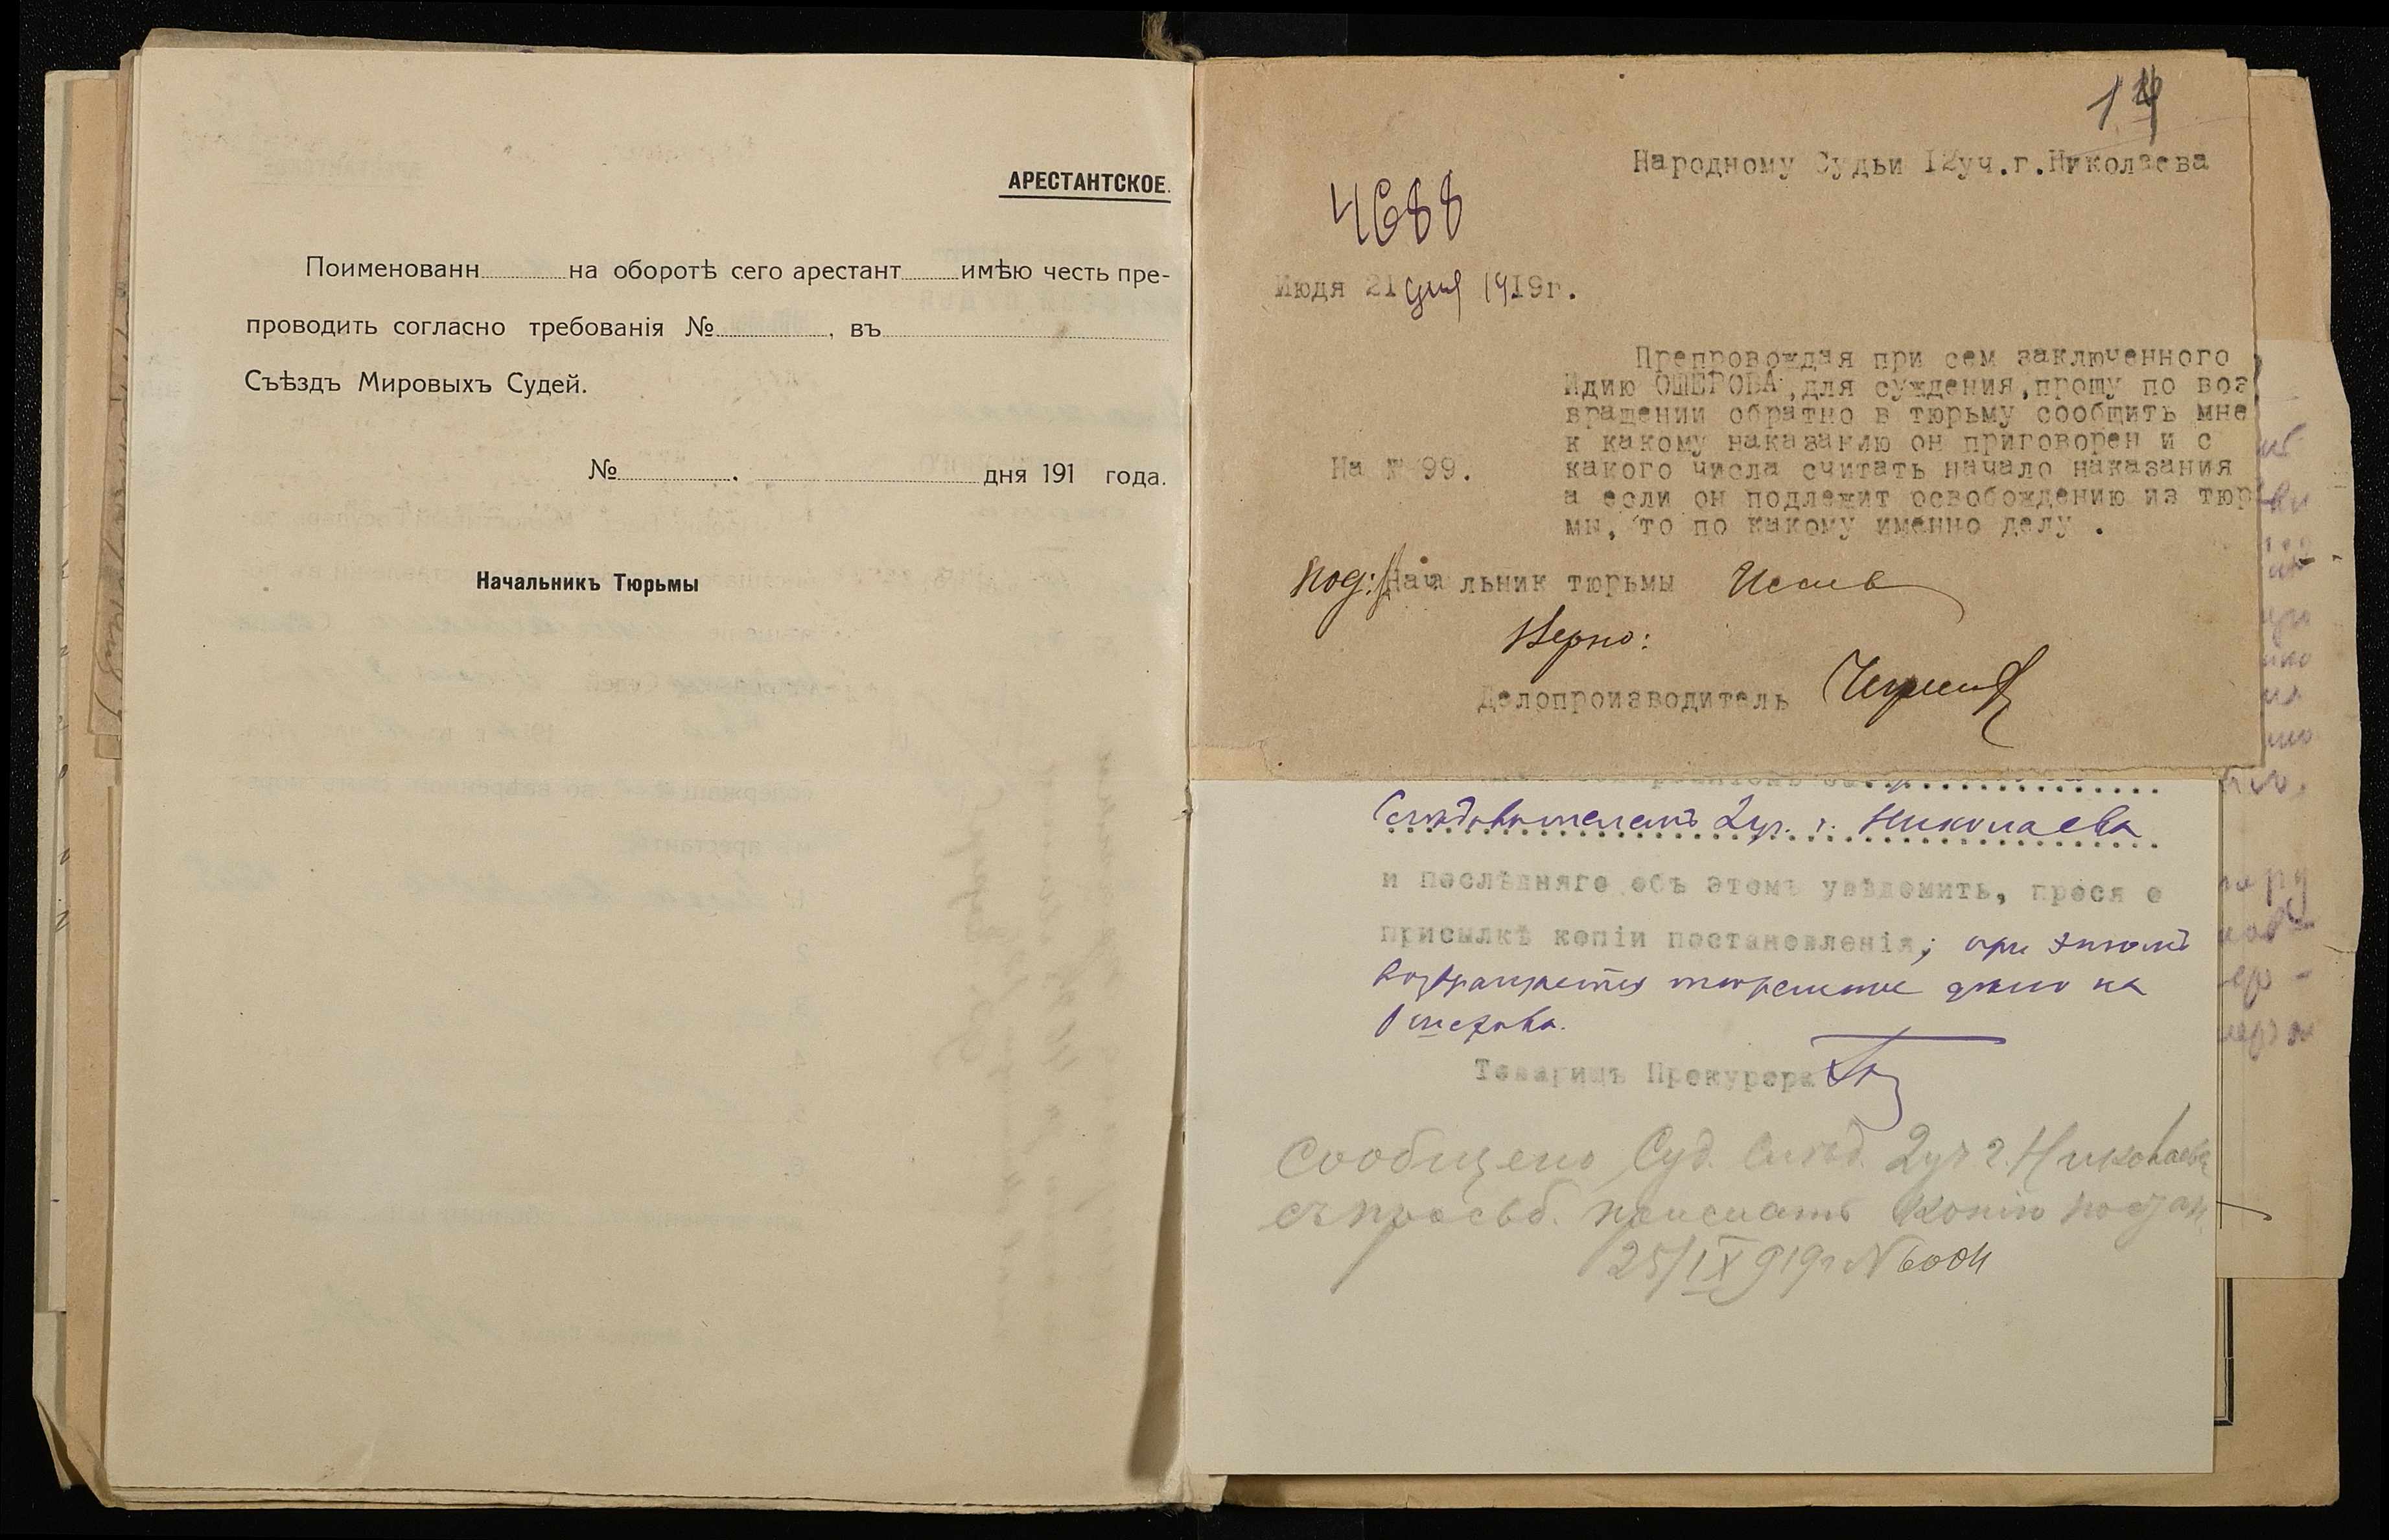 АРЕСТАНТСКОЕ.
Поименованн на оборотѣ сего арестант имѣю честь пре-
проводить согласно требованія №, въ
Съѣздъ Мировыхъ Судей.
№. дня 191 года.
Начальникъ Тюрьмы
14
Народному Судьи 12уч.г.Николаева
4688
Июдя 21 дня 1919г.
Препровождая при сем заключенного
Идию ОШЕРОВА,для суждения,прошу по воз
вращении обратно в тюрьму сообщить мне
к какому наказанию он приговорен и с
На № 99. какого числа считать начало наказания
а если он подлежит освобождению из тюр
мы, то по какому именно делу .
под: Начальник тюрьмы Исаев
Верно:
Делопроизводитель
Слѣдователемъ 2уч. г. Николаева
и послѣдняго объ этомъ увѣдомить, прося о
присылкѣ копіи постановленія; при этомъ
возвращается тюремное дѣло на
Ошерова.
Товарищъ Прокурора
Сообщено Суд. Слѣд. 2уч г. Николаева
съ просьб. прислать копію постан.
25/IX 919г № 6004